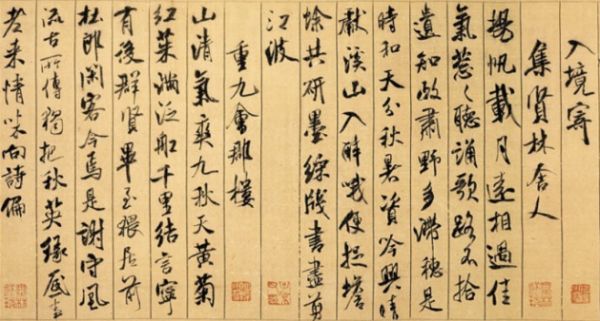 入境寄
集賢林舍人
揚帆載月遠相過佳
氣葱〻聽誦歌路不拾
遺知政肅野多滯穗是
時和天分秋暑資吟興晴
獻溪山入醉哦便捉蟾
蜍共研墨綵牋書盡剪
江波
重九會郡樓
山清氣爽九秋天黃菊
紅茱滿泛船千里結言寧
有後群賢畢至猥居前
杜郎閑客今焉是謝守風
流古所傳獨把秋英緣底事
老來情味向詩偏